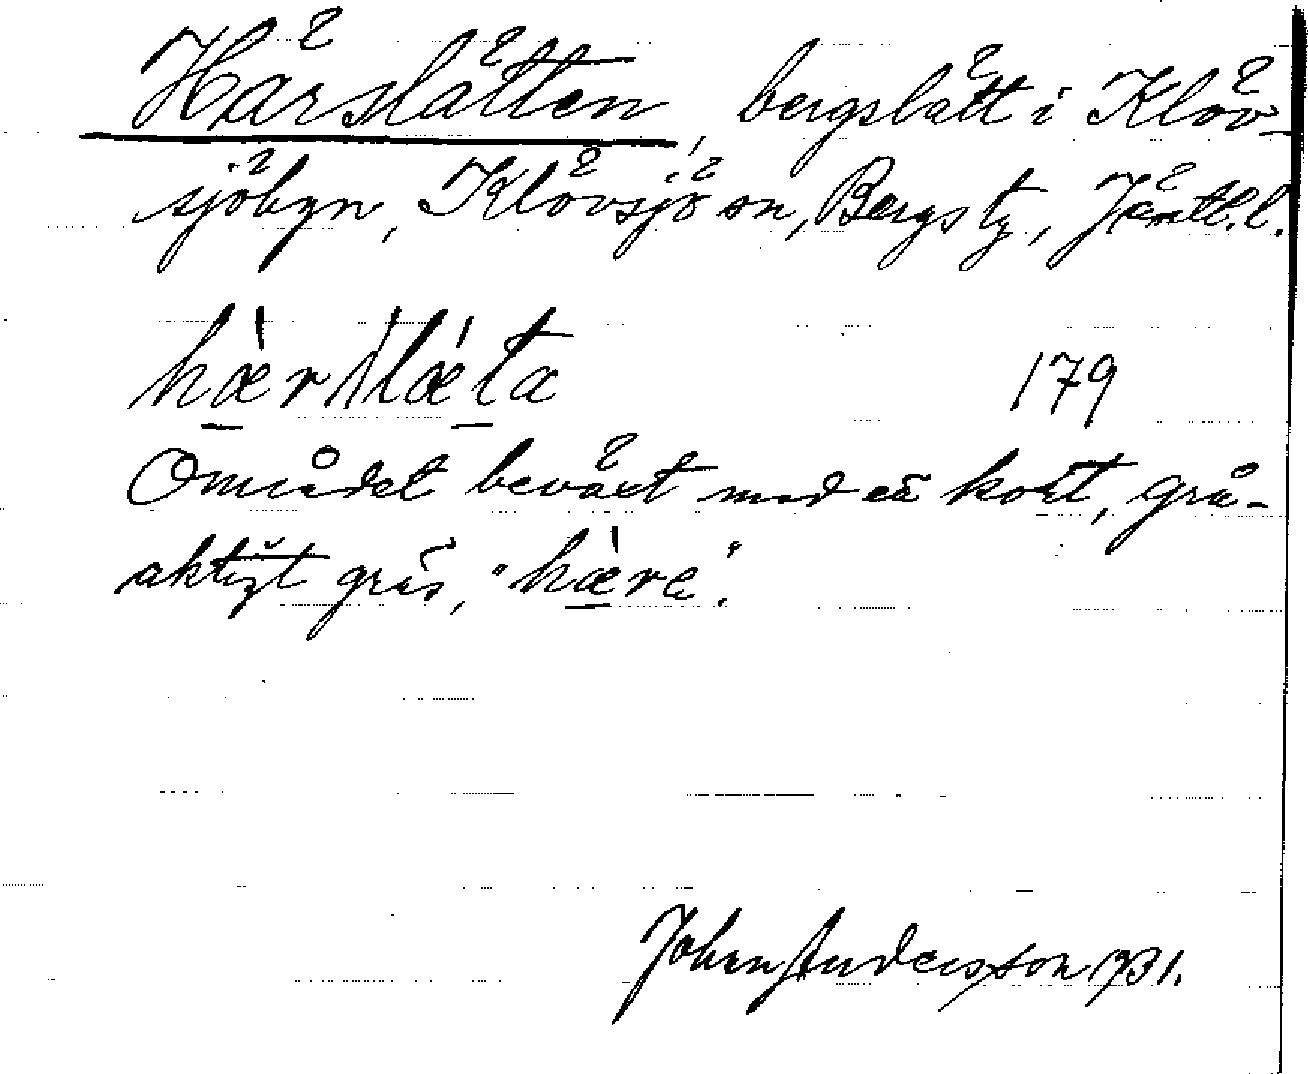 Härslätten, bergslätt i Klöv-
sjöbyn, Klövsjö sn, Bergs tg, Jämtl. l.
hæ̀rslǽta 179
Området beväxt med en kort, grå-
aktigt gräs, "hæ̀ra".
Johan Andersson 1931.